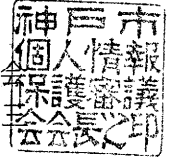 神戸市
個人情報
保護審議
会会長之印